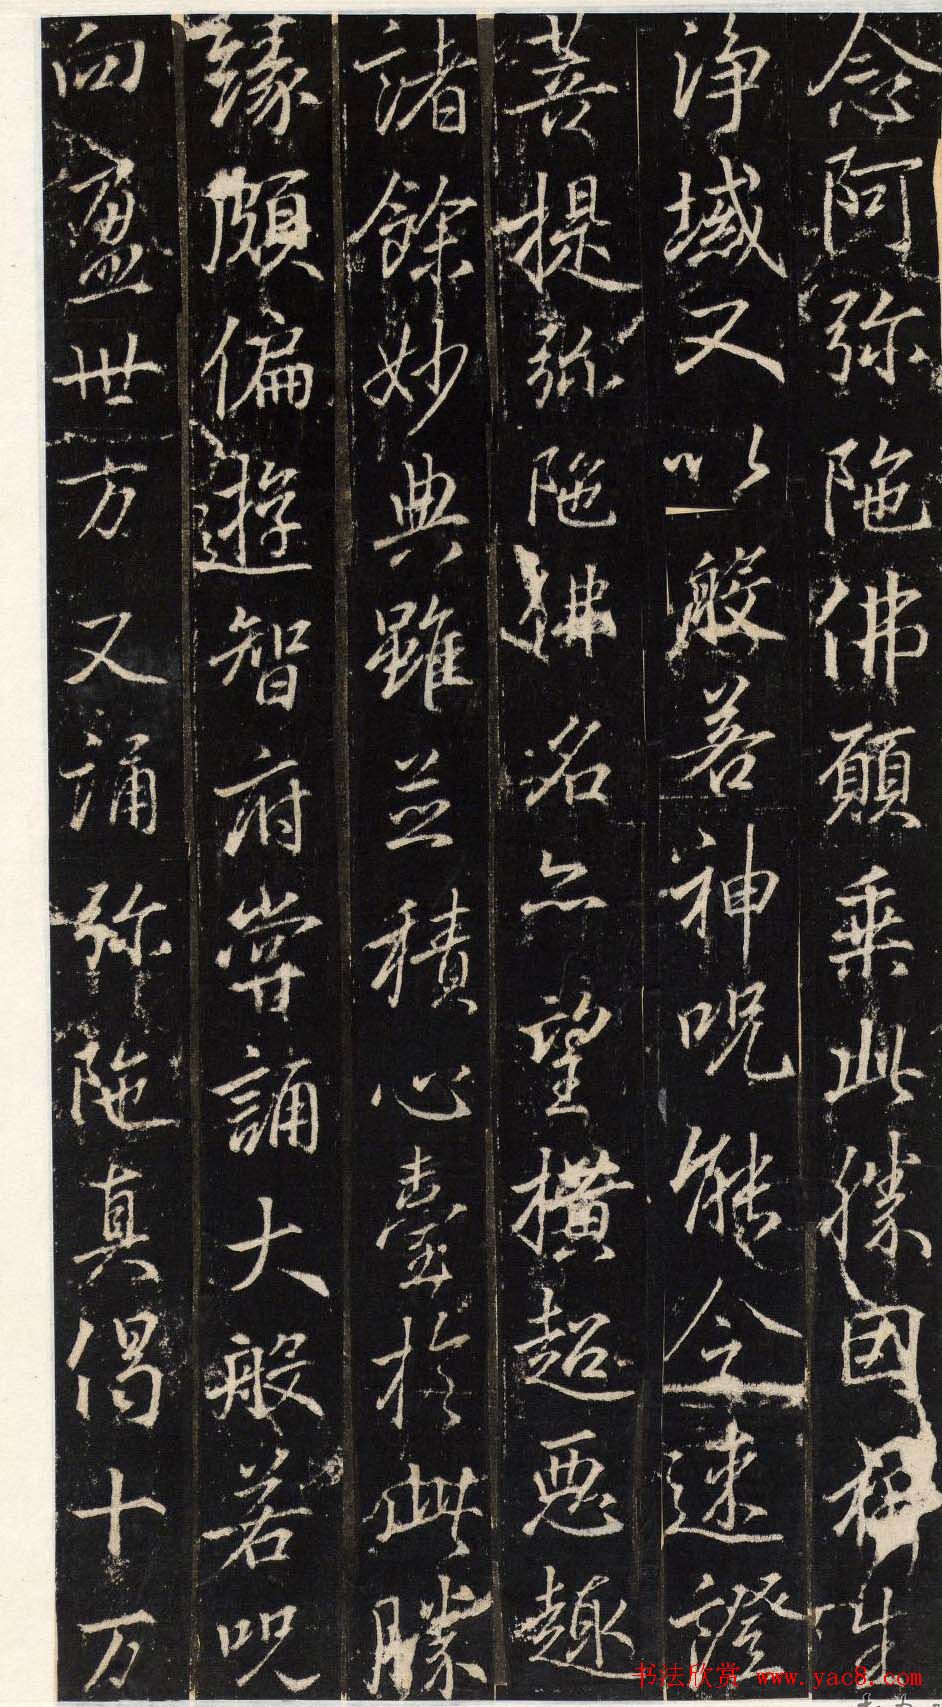 念阿弥陁佛願乗此勝因生
淨域又以般若神呪能令速證
菩提弥陁佛名亦望橫超惡趣
諸餘妙典雖並積心臺於此勝
緣頗偏遊智府嘗誦大般若呪
向盈世方又誦弥陁真偈十万
书法欣赏 www.yac8.com